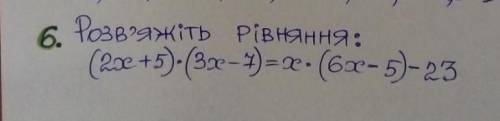 6. Розв'яжіть рівняння:
(2x+5)·(3x-7)=x·(6x-5)-23